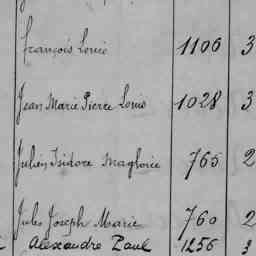 François Louis 1106 3
Jean Marie Pierre Louis 1028 3
Julien Isidore Magloire 765 2
Jules Joseph Marie 760 2
Alexandre Paul 1256 3